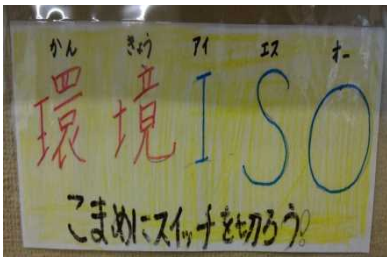 かん きょう アイ エス オー
環境ISO
こまめにスイッチを切ろう。